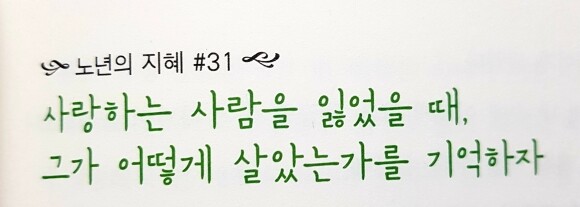 노년의 지혜 #31
사랑하는 사람을 잃었을 때,
그가 어떻게 살았는가를 기억하자